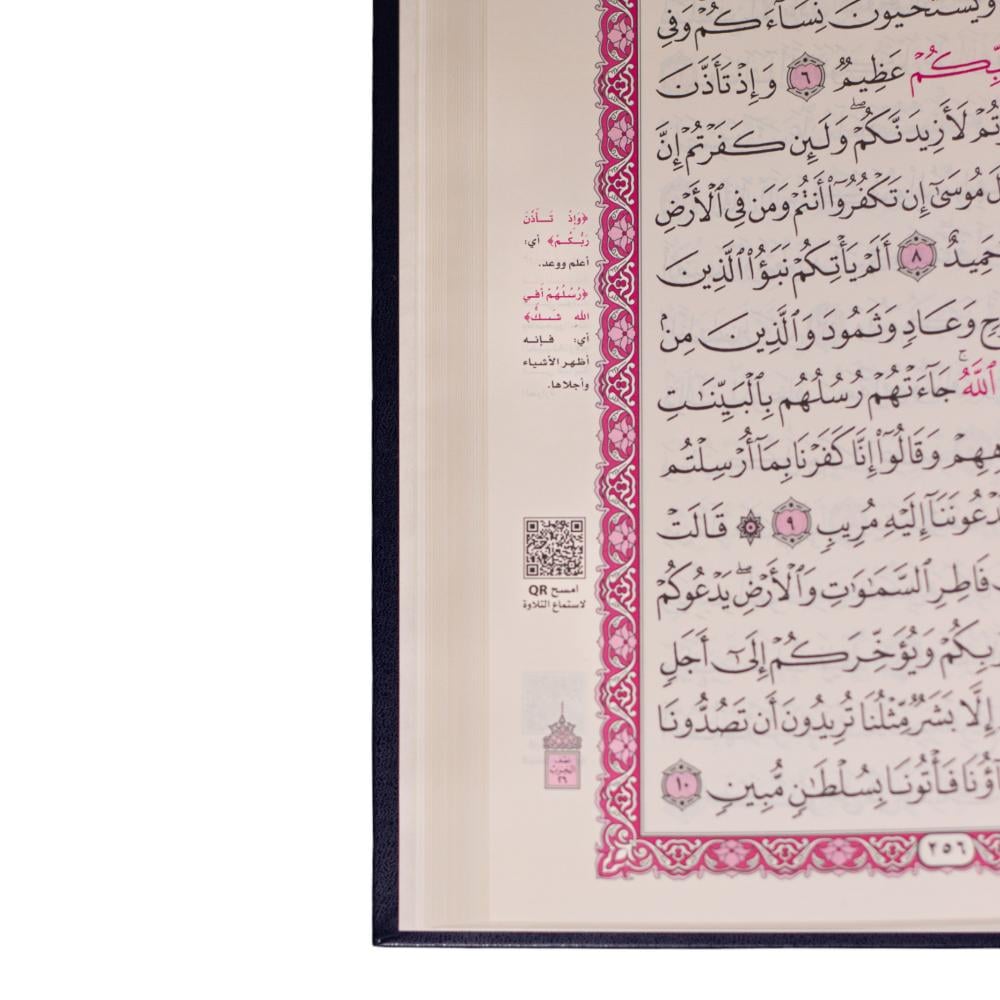 وَيَسْتَحْيُونَ نِسَآءَكُمْ وَفِى
عَظِيمٌ ٦ وَإِذْ تَأَذَّنَ
لَأَزِيدَنَّكُمْ ۖ وَلَئِن كَفَرْتُمْ إِنَّ
مُوسَىٰٓ إِن تَكْفُرُوٓا۟ أَنتُمْ وَمَن فِى ٱلْأَرْضِ
حَمِيدٌ ٨ أَلَمْ يَأْتِكُمْ نَبَؤُا۟ ٱلَّذِينَ
وَعَادٍ وَثَمُودَ وَٱلَّذِينَ مِنۢ
ٱللَّهُ ۚ جَآءَتْهُمْ رُسُلُهُم بِٱلْبَيِّنَـٰتِ
وَقَالُوٓا۟ إِنَّا كَفَرْنَا بِمَآ أُرْسِلْتُم
إِلَيْهِ مُرِيبٍ ٩ ۞ قَالَتْ
فَاطِرِ ٱلسَّمَـٰوَٰتِ وَٱلْأَرْضِ ۖ يَدْعُوكُمْ
وَيُؤَخِّرَكُمْ إِلَىٰٓ أَجَلٍ
إِلَّا بَشَرٌ مِّثْلُنَا تُرِيدُونَ أَن تَصُدُّونَا
فَأْتُونَا بِسُلْطَـٰنٍ مُّبِينٍ ١٠
٢٥٦
﴿وَإِذْ تَـأَذَّنَ
رَبُّكُمْ﴾ أي:
أعلم ووعد.
﴿رُسُلُهُمْ أَفِي
اللهِ شَكٌّ﴾
أي: فإنه
أظهر الأشياء
وأجلاها.
امسح QR
لاستماع التلاوة
نصف
الحزب
٢٦